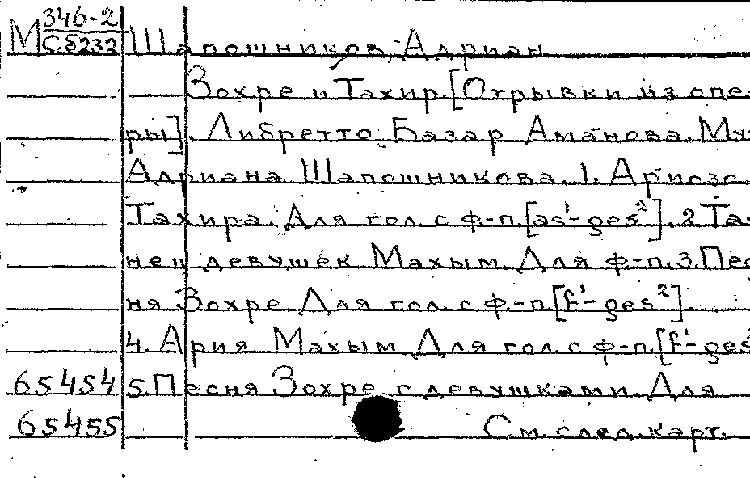 М 346-2
С.6232 Шапошников, Адриан
Зохре и Тахир [Отрывки из опе-
ры]. Либретто Базар Аманова. Муз
Адриана Шапошникова. 1. Ариозо
Тахира. Для гол. с ф-п. [as¹-ges²]. 2 Та-
нец девушек Махым. Для ф-п. 3. Пес
ня Зохре Для гол. с ф.-п [f¹-ges²].
4. Ария Махым Для гол. с ф-п. [f¹-ges
65454 5. Песня Зохре с девушками. Для
65455 См. след. карт.